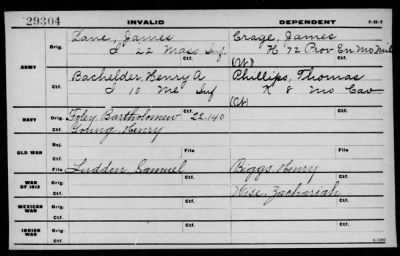 29304 INVALID DEPENDENT
ARMY
Orig. Lane, James Orig. Crage, James
I 22 Mass Inf H 72 Prov En Mo Mil
Ctf. Ctf.
Orig. Bachelder, Henry A Phillips, Thomas
I 10 Me Inf K 8 Mo Cav
Ctf.
NAVY
Orig. Foley Bartholomew Ctf. 22,140 Ctf.
Ctf. Young, Henry
OLD WAR
Rej.
Ctf. File File
WAR OF 1812
Orig. Ludden, Samuel Biggs, Henry
Ctf. Wise, Zachariah
MEXICAN WAR
Orig. Ctf. Ctf.
Ctf.
INDIAN WAR
Orig. Ctf. Ctf.
Ctf.